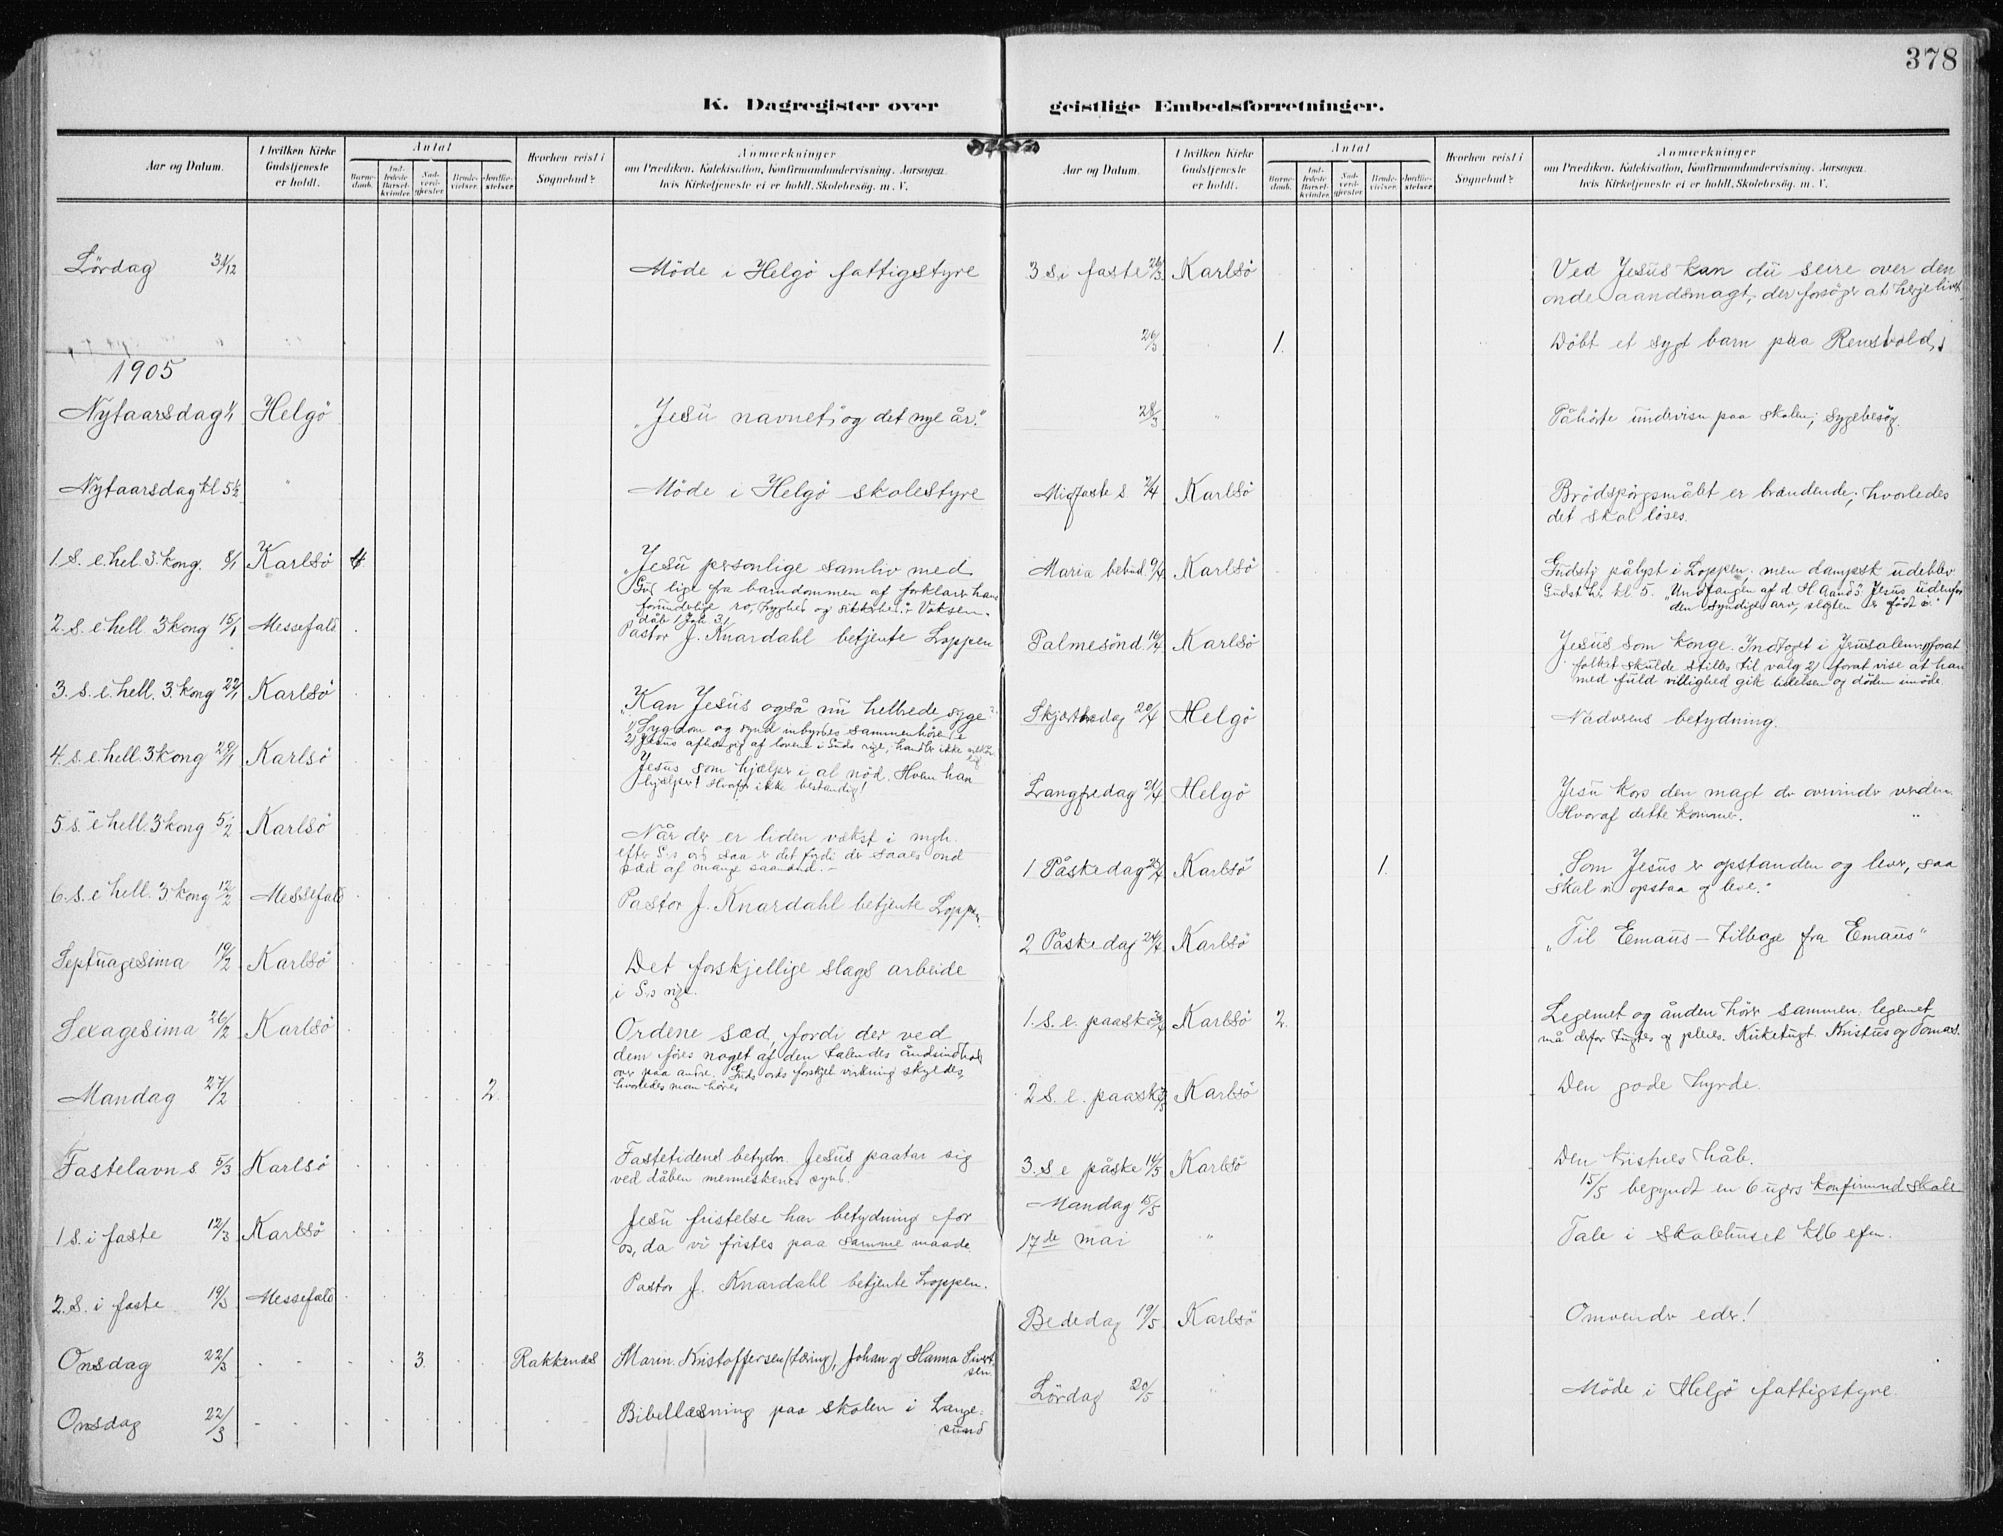 378
K. Dagregister over
geistlige Embedsforretninger.
Aar og Datum.
I hvilken Kirke Gudstjeneste er holdt.
Antal
Barne-daab.
Ind-ledede Barsel-kvinder.
Nad-verd-gjester.
Brude-vielser.
Jordfæ-stelser.
Hvorhen reist i Sognebud?
Anmærkninger
om Prædiken. Katekisation, Konfirmandundervisning. Aarsagen.
hvis Kirketjeneste ei er holdt. Skolebesøg. m. V.
Lördag 31/12 Möde i Helgö fattigstyre
1905
Nytaarsdag 1/1 Helgö "Jesu navnet" og det nye år."
Nytaarsdag kl 5½ " Möde i Helgö skolestyre
1. S. e. hel. 3. kong. 8/1 Karlsö 4. "Jesu personlige samliv med
Gud lige fra barndommen af forklarer hans
forunderlige ro, tryghed og sikkerhed.
2. S. e hell. 3 kong 15/1 Messefald
Pastor J. Knardahl betjente Loppen
3. s. e. hell. 3. kong 22/1 Karlsö "Kan Jesus også nu helbrede syge"
1) Sygdom og synd inbyrdes sammenhörende
2) Jesus afhængig af lovene i Guds rige, handler ikke
4. s. e. hell. 3 kong 29/1 Karlsö Jesus som hjælper i al nöd. Hvem han
hjælper! Hvorfor ikke bestandig!
5 s. e hell. 3 kong 5/2 Karlsö Når der er liden vækst i mgh.
efter G.s ord saa er det fordi der saaes ond
sæd af mange saamænd. -
6. s. e hell. 3 kong 12/2 Messefald Pastor J. Knardahl betjente Loppen
Septuagesima 19/2 Karlsö Det forskjellige slags arbeide
i G.s rige.
Sexagesima 26/2 Karlsö Ordene sæd, fordi der ved
dem föres noget af den talendes åndsindhold
over paa andre. Guds ords forskjel. virkning skyldes,
hvorledes man hörer
Mandag 27/2 2.
Fastelavn s 5/3 Karlsö Fastetidens betydn. Jesus paatar sig
ved dåben menneskenes synd.
1 s. i faste 12/3 Karlsö Jesu fristelse har betydning for
os, da vi fristes paa samme maade
2. s. i faste 19/3 Messefald Pastor J. Knardahl betjente Loppen.
Onsdag 22/3 3. Rakkenes Marin. Kristoffersen (tæring), Johan og Hanna Sivert
sen.
Onsdag 22/3 Bibellæsning paa skolen i Lange-
sund
Aar og Datum.
I hvilken Kirke Gudstjeneste er holdt.
Antal
Barne-daab.
Ind-ledede Barsel-kvinder.
Nad-verd-gjester.
Brude-vielser.
Jordfæ-stelser.
Hvorhen reist i Sognebud?
Anmærkninger
om Prædiken. Katekisation, Konfirmandundervisning. Aarsagen.
hvis Kirketjeneste ei er holdt. Skolebesøg. m. V.
3 s. i faste 26/3 Karlsö Ved Jesus kan du seire over den
onde aandsmagt, der forsöger at herje livet.
26/3 1. Döbt et sygt barn paa Rensvold
28/3 " Påhörte undervisn paa skolen; sygebesög.
Midfaste s 2/4 Karlsö Brödspörgsmålet er brændende; hvorledes
det skal löses.
Maria bebud. 9/4 Karlsö Gudstj pålyst i Loppen. men dampsk udeblev
Gudst her kl 5. "Undfangen af d. H. Aand". Jesus udenfor
den syndige arv, slegten er födt i."
Palmesönd. 16/4 Karlsö Jesus som konge. Indtoget i Jerusalem 1) forat
folket skulde stilles til valg 2) forat vise at han
med fuld villighed gik lidelsen og döden imöde.
Skjærthsdag 20/4 Helgö Nadverens betydning.
Langfredag 21/4 Helgö Jesu kors den magt der overvinder verden.
Hvoraf dette kommer.
1 Påskedag 23/4 Karlsö 1. "Som Jesus er opstanden og lever, saa
skal vi opstaa og leve."
2 Påskedag 24/4 Karlsö "Til Emaus - tilbage fra Emaus"
1. s. e. paaske 30/4 Karlsö 2. Legemet og ånden hörer sammen. legemet
må derfor tugtes og pleies. Kirketugt. Kristus og Tomas.
2 s. e. paaske 7/5 Karlsö Den gode hyrde.
3. s. e påske 14/5 Karlsö Den kristnes håb.
Mandag 15/5 15/5 begyndt en 6 ugers konfirmandskole
17de mai " Tale i skolehuset kl 6 efm.
Bededag 19/5 Karlsö Omvender eder!
Lördag 20/5 " Möde i Helgö fattigstyre.